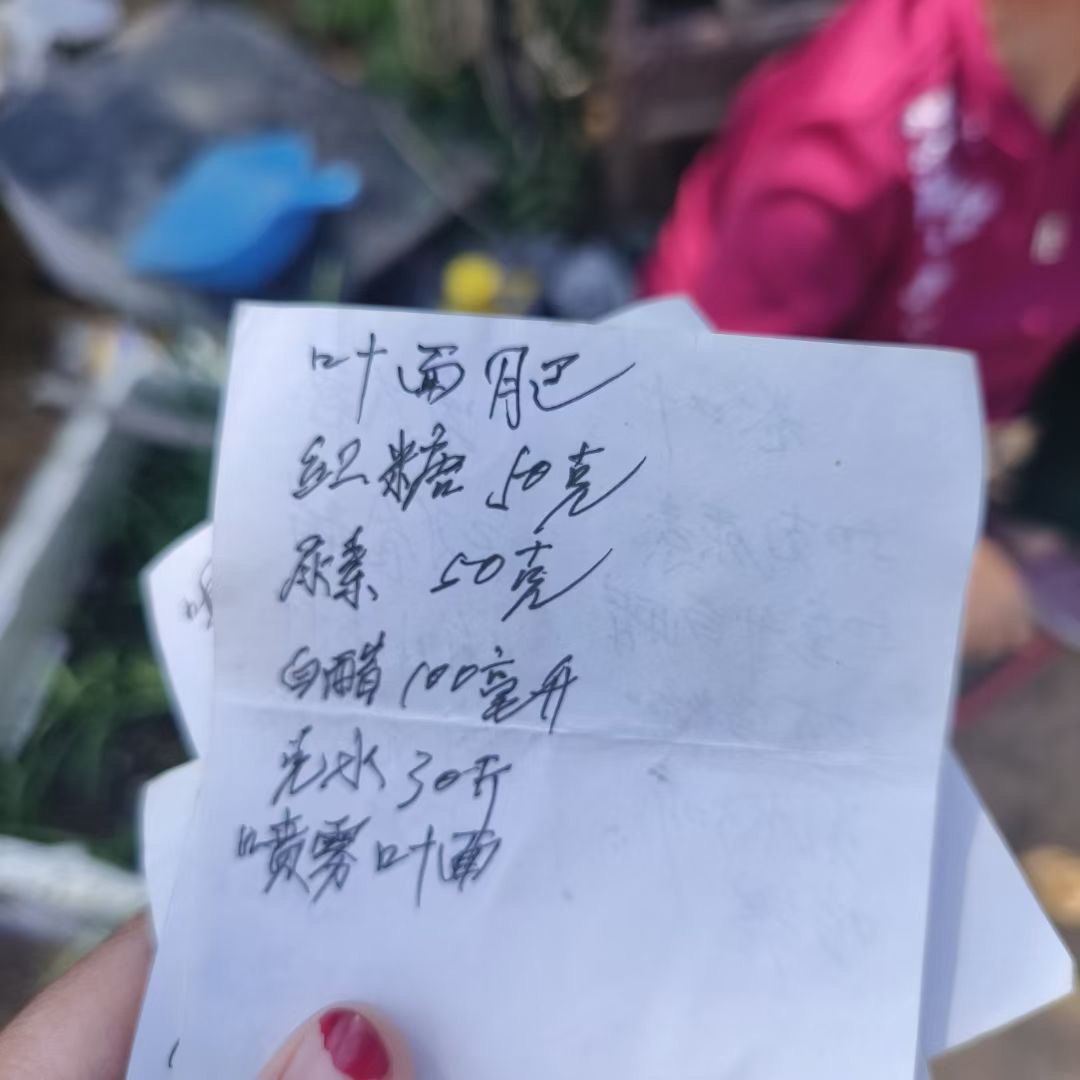 叶面肥
红糖 50克
尿素 50克
白醋 100毫升
兑水 30斤
喷雾叶面